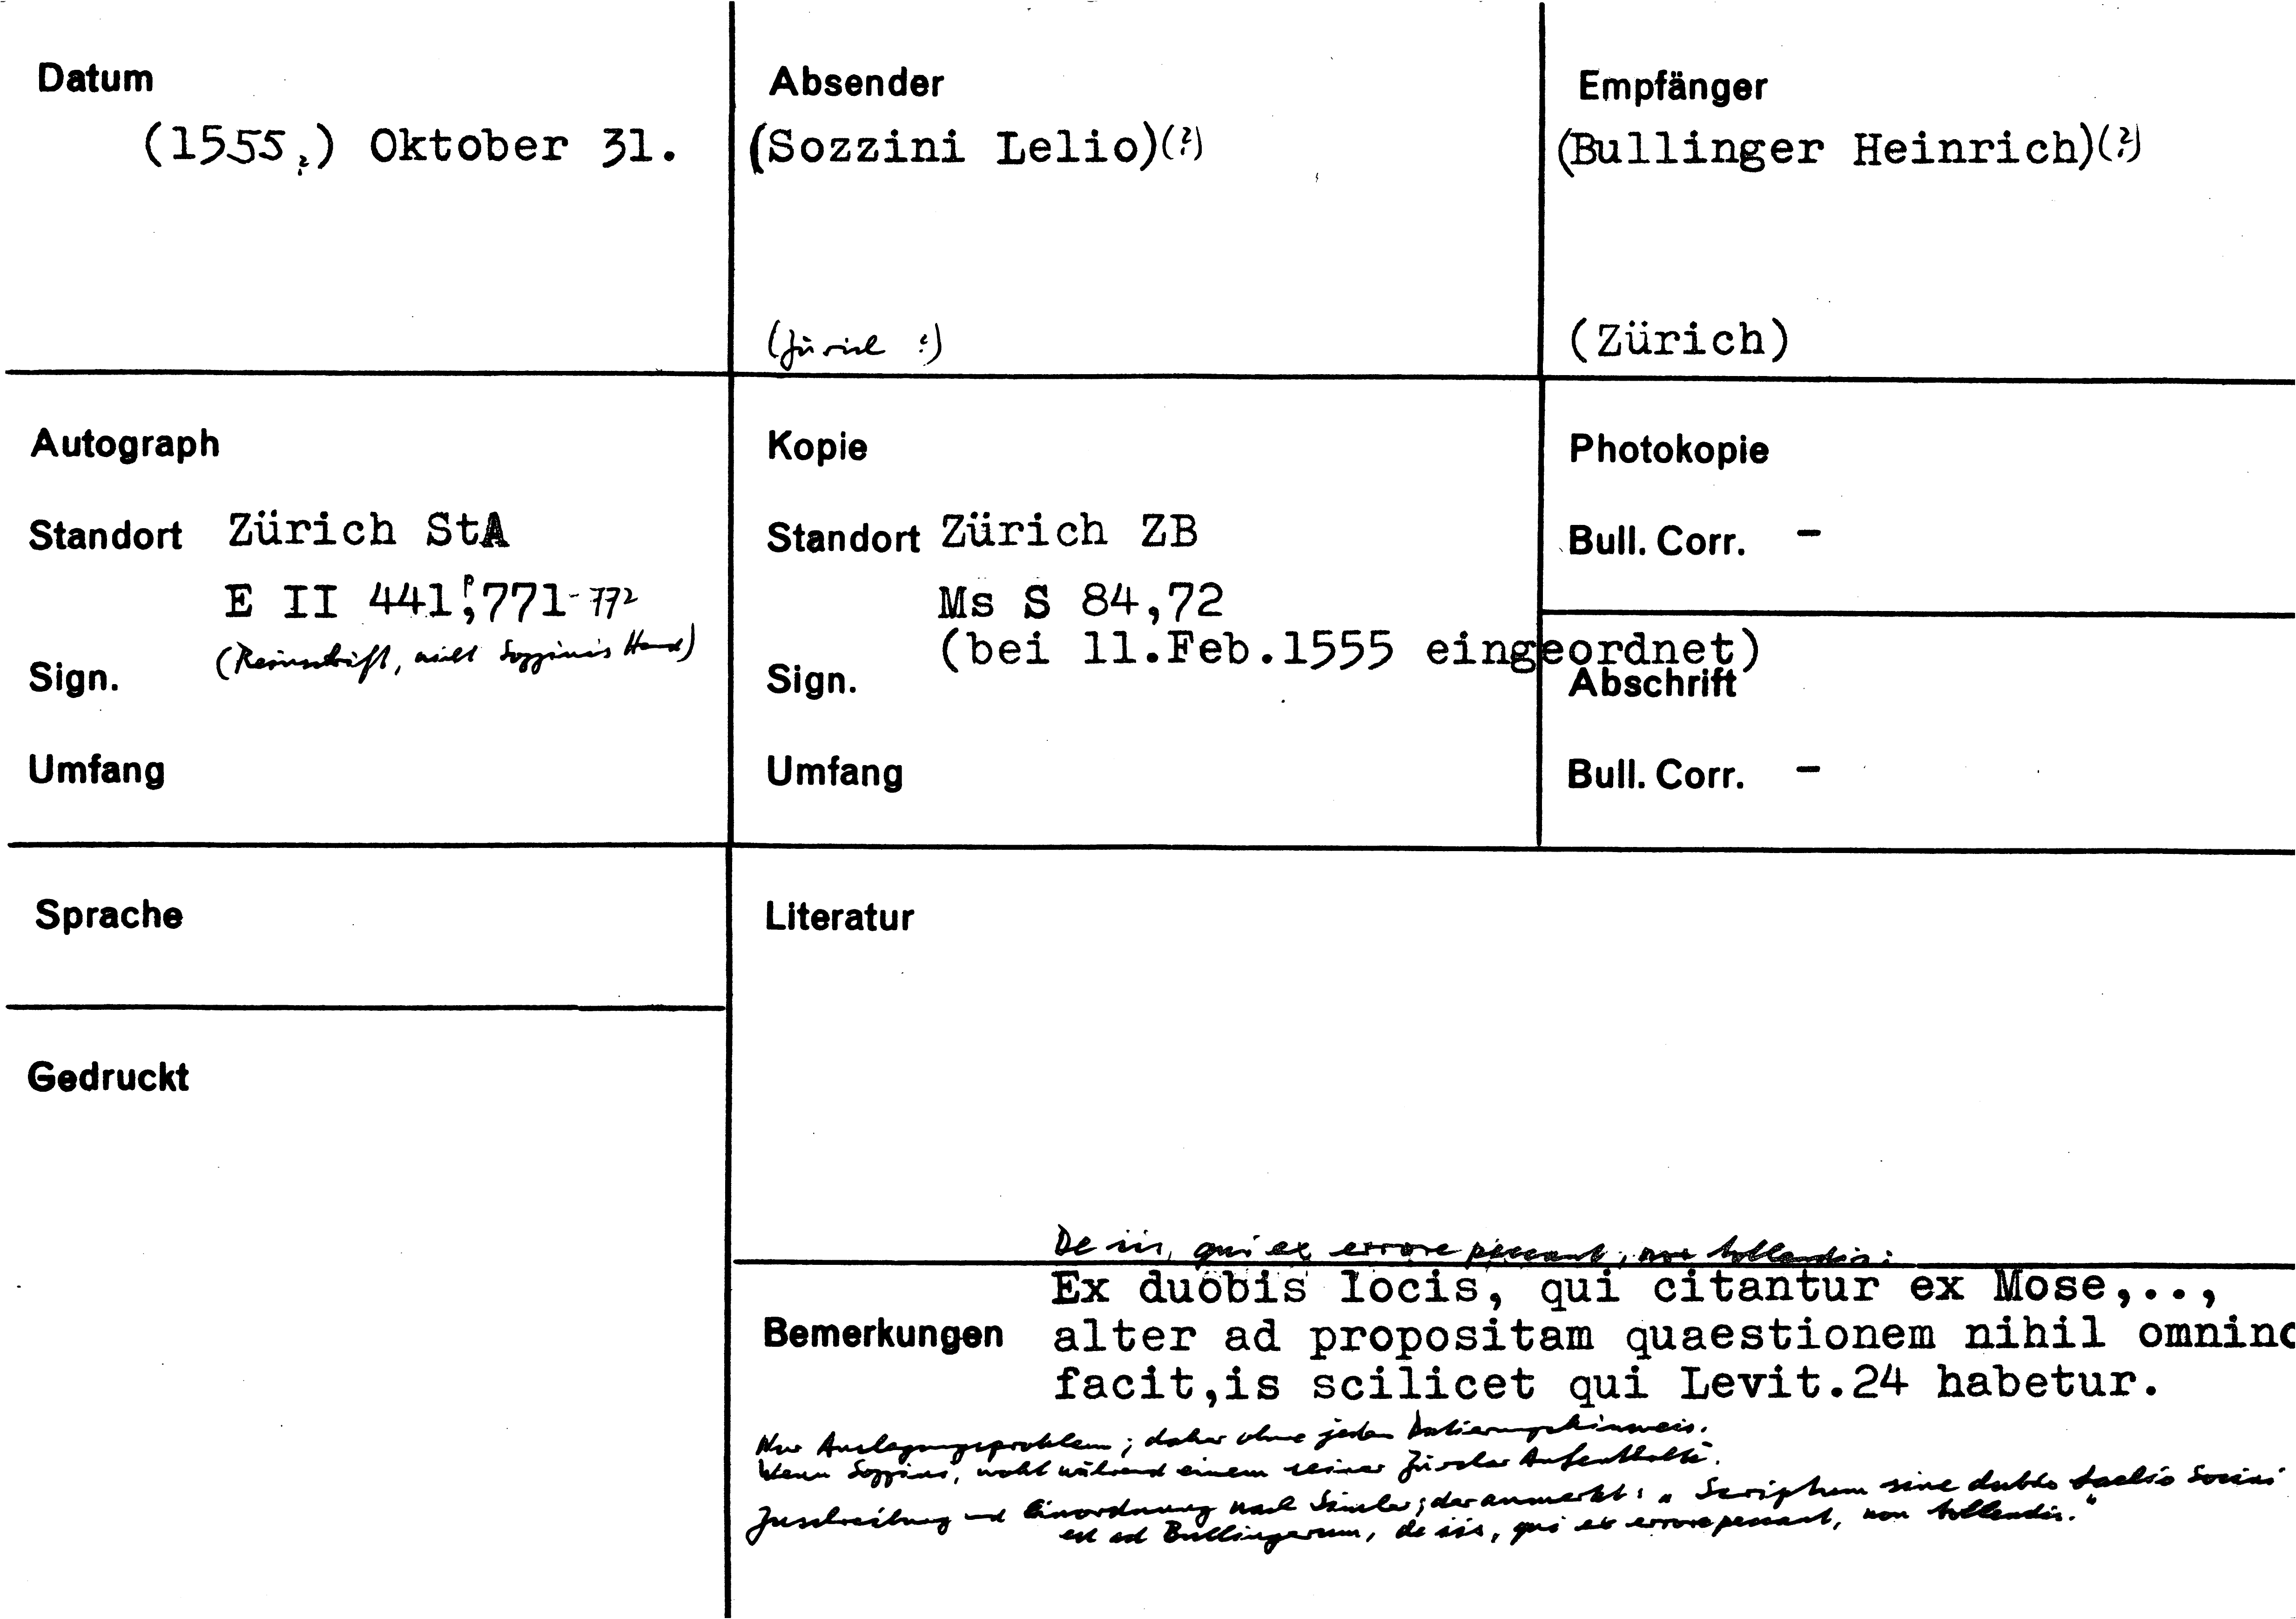 Datum
(1555?) Oktober 31.
Absender
(Sozzini Lelio)(?)
(Zürich ?)
Empfänger
(Bullinger Heinrich)(?)
(Zürich)
Autograph
Standort Zürich StA
E II 441,771-772
(Reinschrift, nicht Sozzinis Hand)
Sign.
Umfang
Kopie
Standort Zürich ZB
Ms S 84,72
(bei 11.Feb.1555 eingeordnet)
Sign.
Umfang
Photokopie
Bull. Corr. -
Abschrift
Bull. Corr. -
Sprache
Gedruckt
Literatur
De iis, qui ex errore peccant, non tollendis:
Ex duobis locis, qui citantur ex Mose,..,
Bemerkungen alter ad propositam quaestionem nihil omnino
facit,is scilicet qui Levit.24 habetur.
Nur Auslegungsproblem; daher ohne jeden Datierungshinweis.
Wenn Sozzini, wohl während einem seiner Zürcher Aufenthalte.
Zuschreibung und Einordnung nach Simler; der anmerkt: "Scriptum sine dubio Laelio Socini
est ad Bullingerum, de iis, qui ex errore peccant, non tollendis."